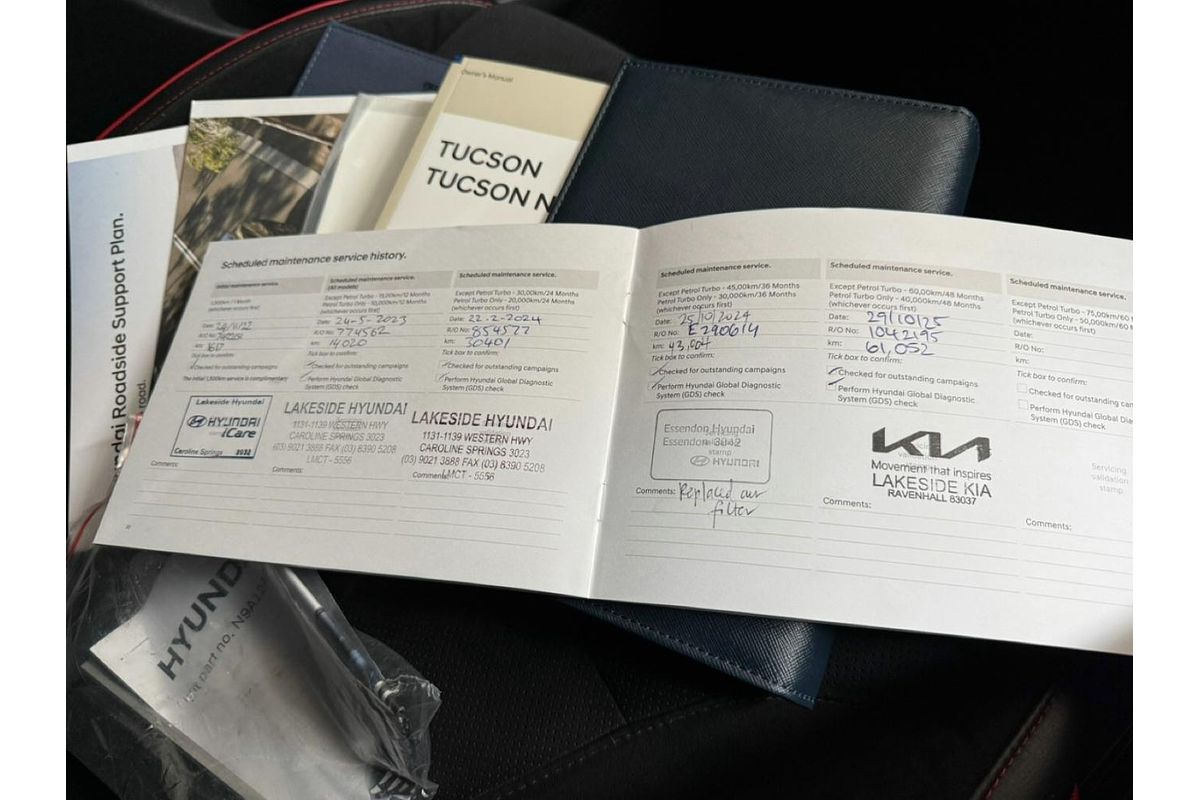 Owner's Manual
TUCSON
TUCSON N
ndai Roadside Support Plan.
road.
Scheduled maintenance service history.
Initial maintenance service.
1,500km / 1 Month
(whichever occurs first)
Date:
R/O No:
km:
Tick box to confirm:
Checked for outstanding campaigns
The initial 1,500km service is complimentary
Lakeside Hyundai
HYUNDAI
iCare
Caroline Springs 3023
Comments:
Scheduled maintenance service.
(All models)
Except Petrol Turbo - 15,00km/12 Months
Petrol Turbo Only - 10,000km/12 Months
(whichever occurs first)
Date: 24-5-2023
R/O No: 774562
km: 14020
Tick box to confirm:
Checked for outstanding campaigns
Perform Hyundai Global Diagnostic
System (GDS) check
LAKESIDE HYUNDAI
1131-1139 WESTERN HWY
CAROLINE SPRINGS 3023
(03) 9021 3888 FAX (03) 8390 5208
LMCT - 5556
Comments:
Scheduled maintenance service.
Except Petrol Turbo - 30,00km/24 Months
Petrol Turbo Only - 20,000km/24 Months
(whichever occurs first)
Date: 22-2-2024
R/O No: 854577
km: 30401
Tick box to confirm:
Checked for outstanding campaigns
Perform Hyundai Global Diagnostic
System (GDS) check
LAKESIDE HYUNDAI
1131-1139 WESTERN HWY
CAROLINE SPRINGS 3023
(03) 9021 3888 FAX (03) 8390 5208
LMCT - 5556
Comments:
Scheduled maintenance service.
Except Petrol Turbo - 45,00km/36 Months
Petrol Turbo Only - 30,000km/36 Months
(whichever occurs first)
Date: 25/10/2024
R/O No: E290614
km: 43,004
Tick box to confirm:
Checked for outstanding campaigns
Perform Hyundai Global Diagnostic
System (GDS) check
Essendon Hyundai
Essendon 3042
stamp
HYUNDAI
Comments: Replaced air
filter
Scheduled maintenance service.
Except Petrol Turbo - 60,00km/48 Months
Petrol Turbo Only - 40,000km/48 Months
(whichever occurs first)
Date: 29/10/25
R/O No: 1042195
km: 61,052
Tick box to confirm:
Checked for outstanding campaigns
Perform Hyundai Global Diagnostic
System (GDS) check
KIA
Movement that inspires
LAKESIDE KIA
RAVENHALL 83037
Comments:
Scheduled maintenance service.
Except Petrol Turbo - 75,00km/60 M
Petrol Turbo Only - 50,000km/60 M
(whichever occurs first)
Date:
R/O No:
km:
Tick box to confirm:
Checked for outstanding cam
Perform Hyundai Global Dia
System (GDS) check
Servicing
validation
stamp
Comments:
HYUND
part no. N9A1A